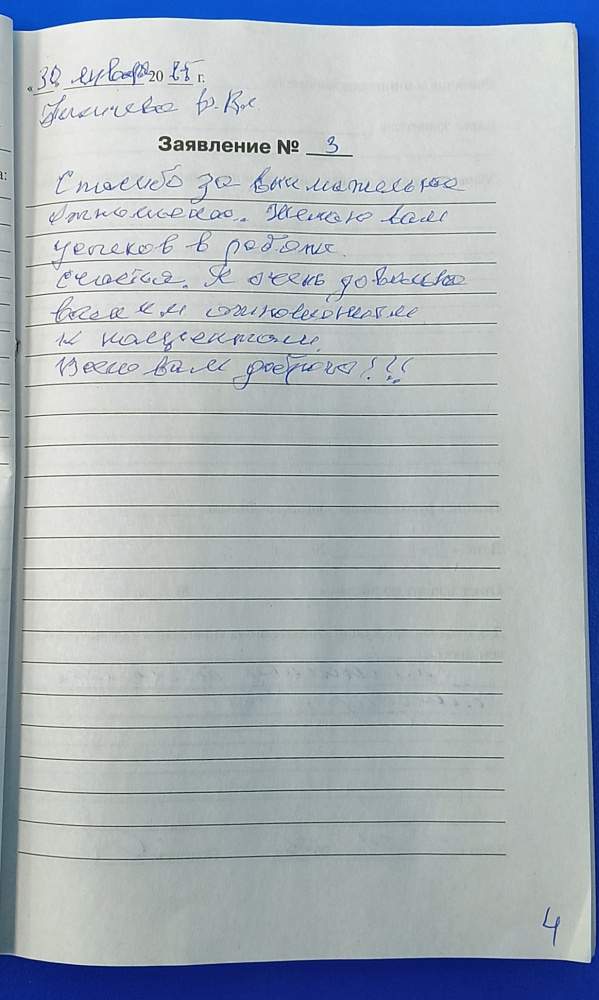 « 30 январ 20 25 г.
Заявление № 3
Спасибо за внимательное
отношение. Желаю вам
успехов в работе
счастья. Я очень довольна
вашим отношением
к пациентам.
Всего вам доброго!!!
4